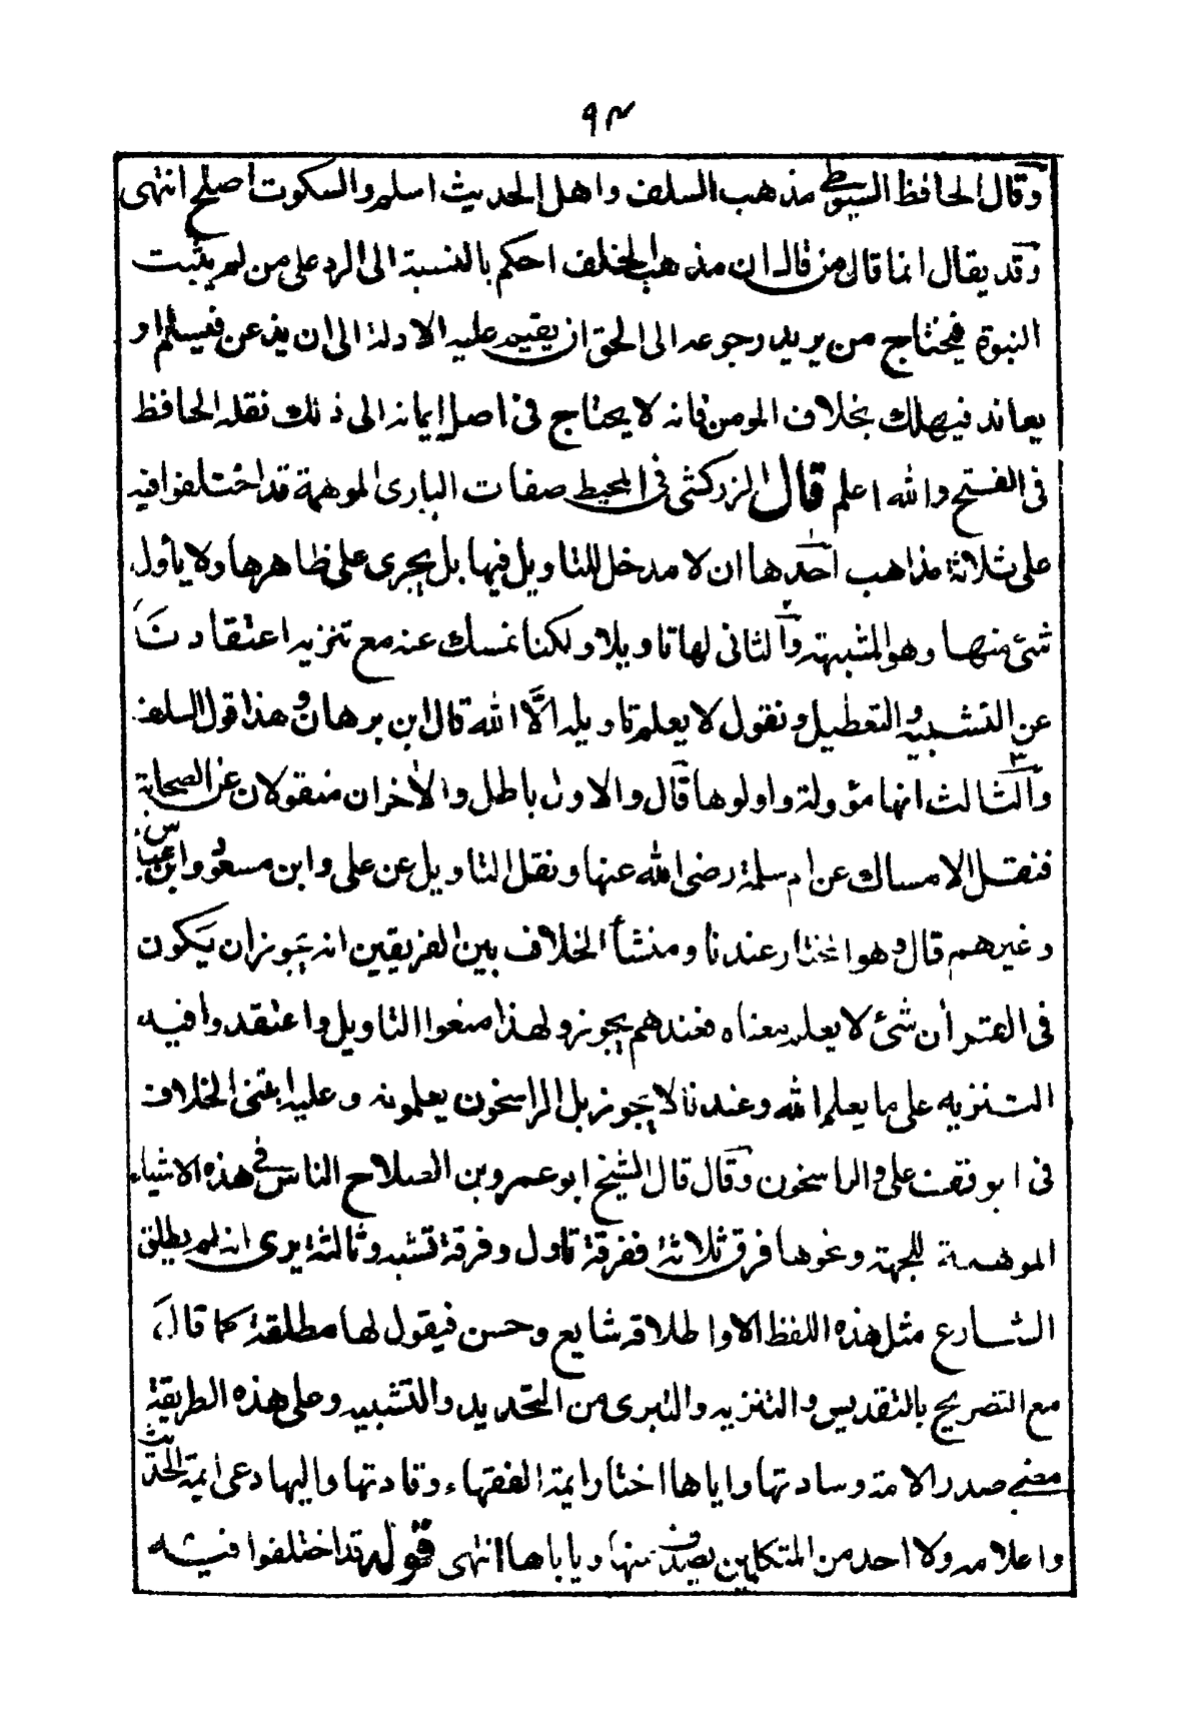 ٩٣
وقال الحافظ السيوطي مذهب السلف واهل الحديث اسلم والسكوت اصلح انتهى
وقد يقال انما قال من قال ان مذهب الخلف احكم بالنسبة الى الرد على من لم يثبت
النبوة فيحتاج من يريد رجوعه الى الحق ان يقيم عليه الادلة الى ان يذعن فيسلم او
يعاند فيهلك بخلاف المومن فانه لا يحتاج فى اصل ايمانه الى ذلك نقله الحافظ
فى الفتح والله اعلم قال الزركشى فى المحيط صفات البارى الموهمة قد اختلفوا فيه
على ثلاثة مذاهب احدها ان لا مدخل للتاويل فيها بل يجرى على ظاهرها ولا يأول
شئ منها وهو المشبهة والثانى لها تاويلا ولكنا نمسك عنه مع تنزيه اعتقادنا
عن التشبيه والتعطيل ونقول لا يعلم تاويله الّا الله قال ابن برهان وهذا قول السلف
والثالث انها مؤولة واولوها قال والاول باطل والأخران منقولان عن الصحابة
فنقل الامساك عن ام سلمة رضى الله عنها ونقل التاويل عن على وابن مسعود وابن عباس
وغيرهم قال وهو المختار عندنا ومنشأ الخلاف بين الفريقين انه يجوز ان يكون
فى القرأن شئ لا يعلم معناه فعندهم يجوز ولهذا منعوا التاويل واعتقدوا فيه
التنزيه على ما يعلم الله وعندنا لا يجوز بل الراسخون يعلمونه وعليه ابتنى الخلاف
فى الوقف على والراسخون وقال قال الشيخ ابو عمرو بن الصلاح الناس فى هذه الاشياء
الموهمة للجهة ونحوها فرق ثلاثة ففرقة تاول وفرقة تشبه وثالثة يرى انه لم يطلق
الشارع مثل هذه اللفظ الا واطلاقه شايع وحسن فيقول لها مطلقة كما قال
مع التصريح بالتقديس والتنزيه والتبرى من التحديد والتشبيه وعلى هذه الطريقة
مضى صدر الامة وسادتها واياها اختار ايمة الفقهاء وقادتها واليها دعى ايمة الحديث
واعلامه ولا احد من المتكلمين يصدف عنها وياباها انتهى قوله قد اختلفوا فيه